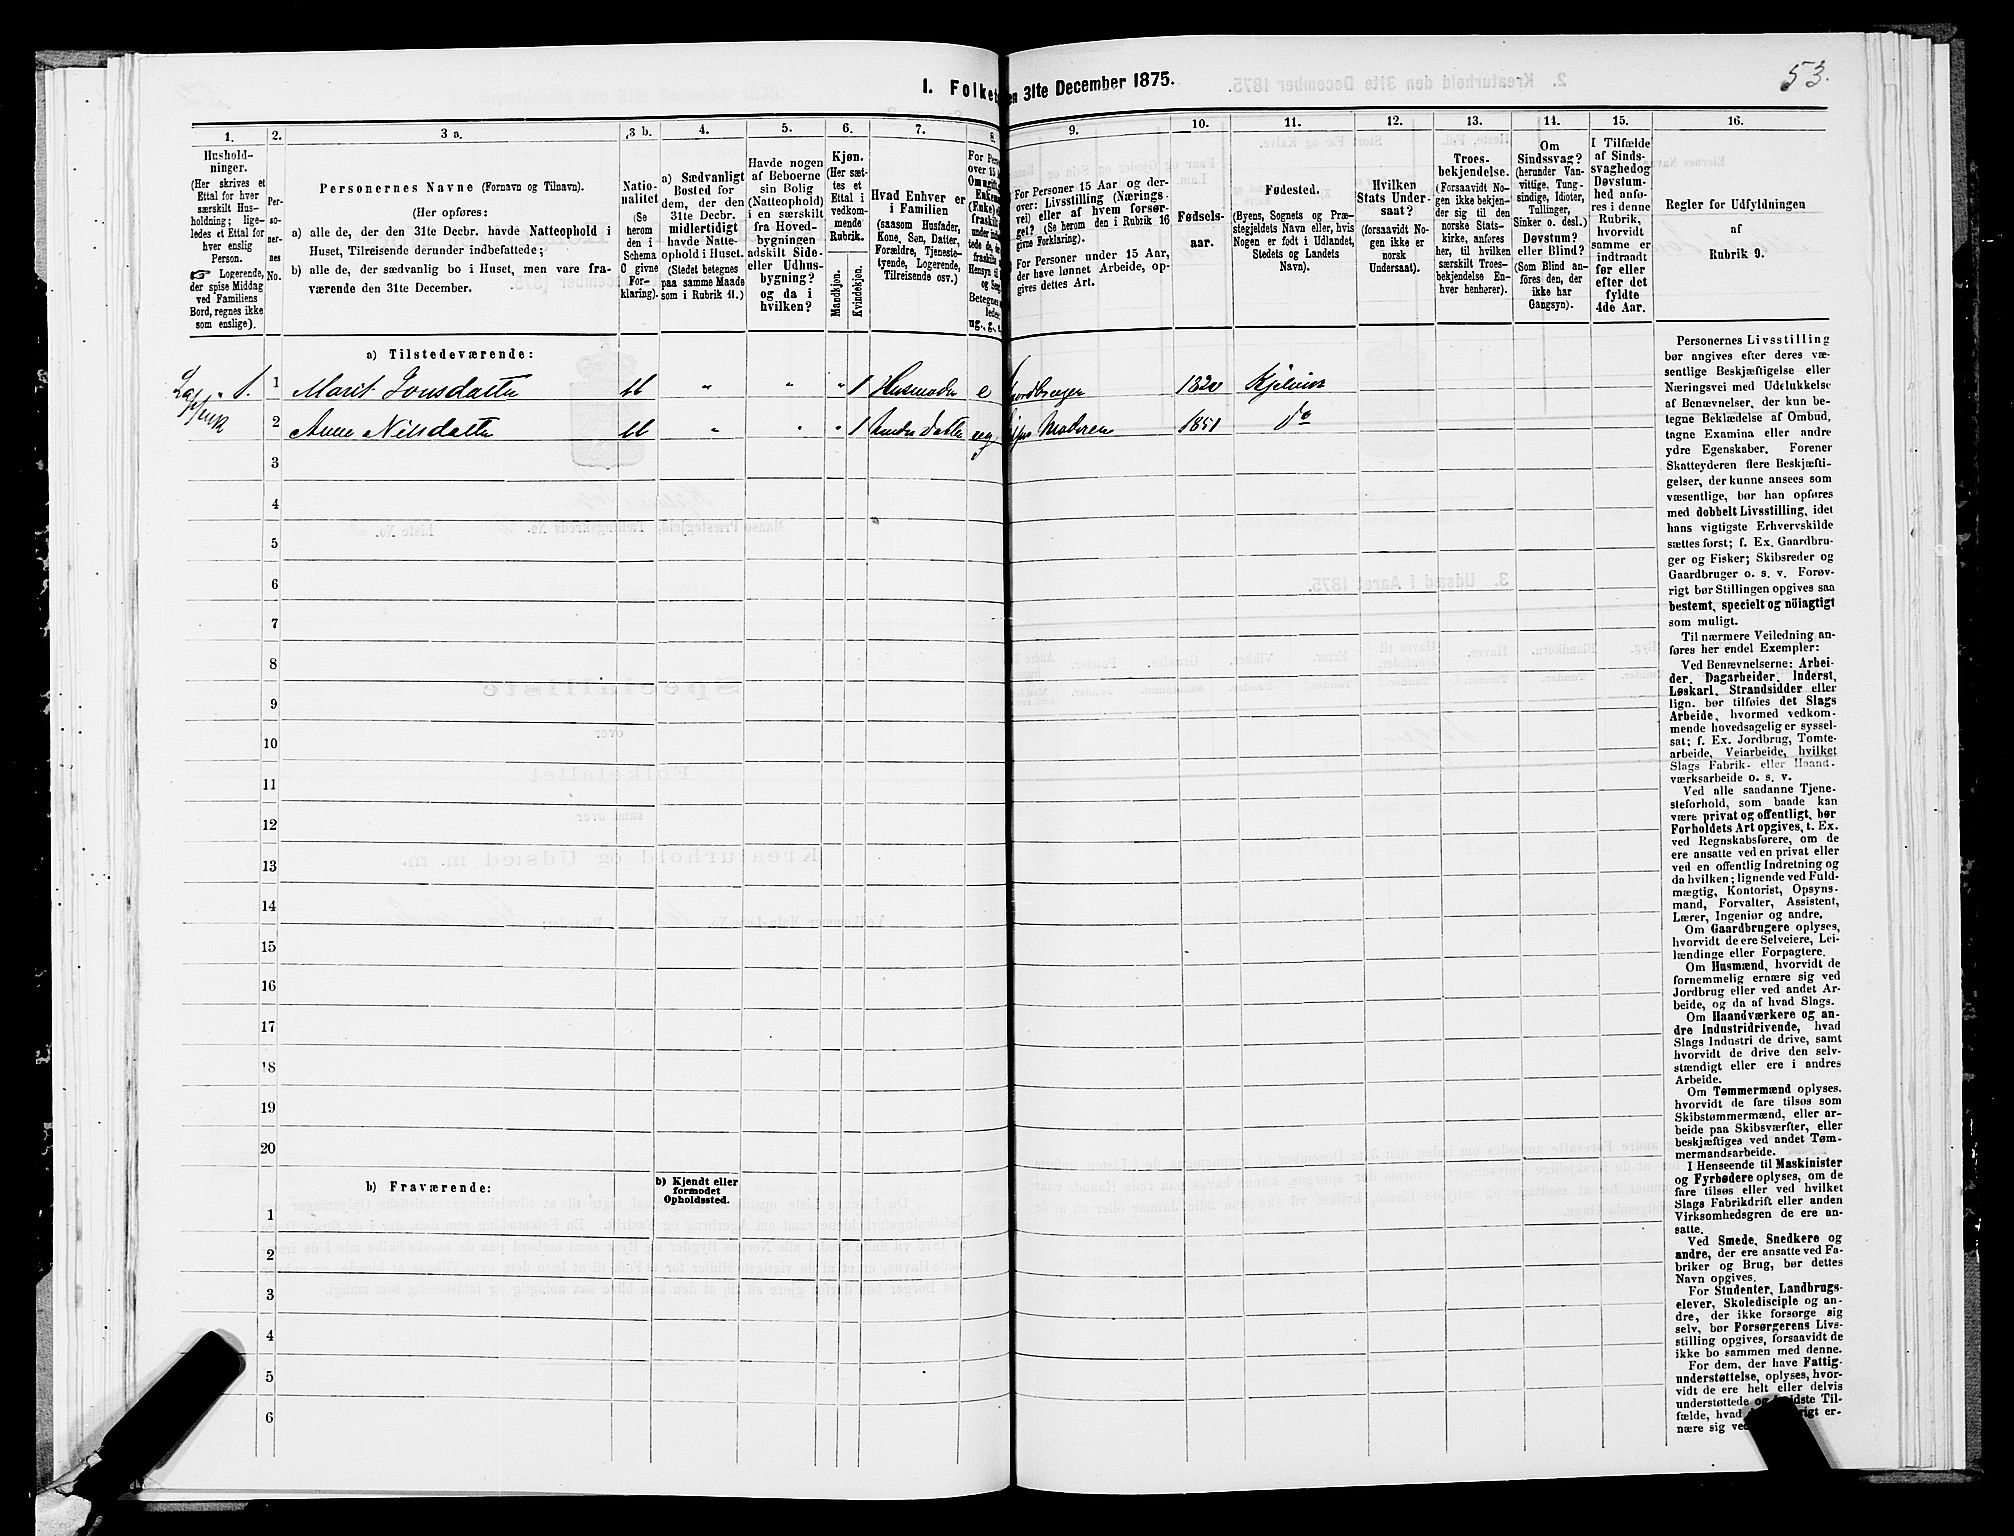 1. Folket en 31te December 1875.
53.
1.
2.
3 a.
3 b.
4.
5.
6.
7.
8.
9.
10.
11.
12.
13.
14.
15.
16.
Hushold-
ninger.
(Her skrives et
Ettal for hver
særskilt Hus-
holdning; lige-
ledes et Ettal for
hver enslig
Person.
☞ Logerende,
der spise Middag
ved Familiens
Bord, regnes ikke
som enslige).
Per-
so-
ner-
nes
No.
Personernes Navne (Fornavn og Tilnavn).
(Her opføres:
a) alle de, der den 31te Decbr. havde Natteophold i
Huset, Tilreisende derunder indbefattede;
b) alle de, der sædvanlig bo i Huset, men vare fra-
værende den 31te December.
Natio-
nalitet
(Se
herom
den i
Schema
O givne
For-
klaring).
a) Sædvanligt
Bosted for
dem, der den
31te Decbr.
midlertidigt
havde Natte-
ophold i Huset.
(Stedet betegnes
paa samme Maade
som i Rubrik 11.)
Havde nogen
af Beboerne
sin Bolig
(Natteophold)
i en særskilt
fra Hoved-
bygningen
adskilt Side-
eller Udhus-
bygning?
og da i
hvilken?
Kjøn.
(Her sæt-
tes et
Ettal i
vedkom-
mende
Rubrik.
Mandkjøn.
Kvindekjøn.
Hvad Enhver er
i Familien
(saasom Husfader,
Kone, Søn, Datter,
Forældre, Tjeneste-
tyende, Logerende,
Tilreisende osv.)
For Pers
over 15 A
Om ugift,
Enkem
(Enke) e
fraskilt
under ind
tede de,
fraskilte
Hensyn til
og Seng.
Betegnes
ledes:
ug., g., e.
For Personer 15 Aar og der-
over: Livsstilling (Nærings-
vei) eller af hvem forsør-
get? (Se herom den i Rubrik 16
givne Forklaring).
For Personer under 15 Aar,
der have lønnet Arbeide, op-
gives dettes Art.
Fødsels-
aar.
Fødested.
(Byens, Sognets og Præ-
stegjeldets Navn eller, hvis
Nogen er født i Udlandet,
Stedets og Landets
Navn).
Hvilken
Stats Under-
saat?
(forsaavidt No-
gen ikke er
norsk
Undersaat).
Troes-
bekjendelse.
(Forsaavidt No-
gen ikke bekjen-
der sig til den
norske Stats-
kirke, anføres
her, til hvilken
særskilt Troes-
bekjendelse En-
hver henhører).
Om
Sindssvag?
(herunder Van-
vittige, Tung-
sindige, Idioter,
Tullinger,
Sinker o. desl.)
Døvstum?
eller Blind?
(Som Blind an-
føres den, der
ikke har
Gangsyn).
I Tilfælde
af Sinds-
svaghedog
Døvstum-
hed anfø-
res i denne
Rubrik,
hvorvidt
samme er
indtraadt
før eller
efter det
fyldte
4de Aar.
Regler for Udfyldningen
af
Rubrik 9.
a) Tilstedeværende:
1. 1 Marit Jonsdatter 1 Husmoder e Jordbruger 182
2 Anne Nilsdatter 1 Datter ug Moderen 1851 do
3
4
5
6
7
8
9
10
11
12
13
14
15
16
17
18
19
20
b) Fraværende:
b) Kjendt eller
formodet
Opholdssted.
1
2
3
4
5
6
Personernes Livsstilling
bør angives efter deres væ-
sentlige Beskjæftigelse eller
Næringsvei med Udelukkelse
af Benævnelser, der kun be-
tegne Beklædelse af Ombud,
tagne Examina eller andre
ydre Egenskaber. Forener
Skatteyderen flere Beskjæfti-
gelser, der kunne ansees som
væsentlige, bør han opføres
med dobbelt Livsstilling, idet
hans vigtigste Erhvervskilde
sættes først; f. Ex. Gaardbru-
ger og Fisker; Skibsreder og
Gaardbruger o. s. v. Forøv-
rigt bør Stillingen opgives saa
bestemt, specielt og nöiagtigt
som muligt.
Til nærmere Veiledning an-
føres her endel Exempler:
Ved Benævnelserne: Arbei-
der, Dagarbeider, Inderst,
Løskarl, Strandsidder eller
lign. bør tilføies det Slags
Arbeide, hvormed vedkom-
mende hovedsagelig er syssel-
sat; f. Ex. Jordbrug, Tomte-
arbeide, Veiarbeide, hvilket
Slags Fabrik- eller Haand-
værksarbeide o. s. v.
Ved alle saadanne Tjene-
steforhold, som baade kan
være privat og offentligt, bør
Forholdets Art opgives, t. Ex.
ved Regnskabsførere, om de
ere ansatte ved en privat eller
ved en offentlig Indretning og
da hvilken; lignende ved Fuld-
mægtig, Kontorist, Opsyns-
mand, Forvalter, Assistent,
Lærer, Ingeniør og andre.
Om Gaardbrugere oplyses,
hvorvidt de ere Selveiere, Lei-
lændinge eller Forpagtere.
Om Husmænd, hvorvidt de
fornemmelig ernære sig ved
Jordbrug eller ved andet Ar-
beide, og da af hvad Slags.
Om Haandværkere og an-
dre Industridrivende, hvad
Slags Industri de drive, samt
hvorvidt de drive den selv-
stændigt eller ere i andres
Arbeide.
Om Tømmermænd oplyses,
hvorvidt de fare tilsøs som
Skibstømmermænd, eller ar-
beide paa Skibsværfter, eller
beskjæftiges ved andet Tøm-
mermandsarbeide.
I Henseende til Maskinister
og Fyrbødere oplyses, om de
fare tilsøs eller ved hvilket
Slags Fabrikdrift eller anden
Virksomhedsgren de ere an-
satte.
Ved Smede, Snedkere og
andre, der ere ansatte ved Fa-
briker og Brug, bør dettes
Navn opgives.
For Studenter, Landbrugs-
elever, Skoledisciple og an-
dre, der ikke forsørge sig
selv, bør Forsørgerens Livs-
stilling opgives, forsaavidt de
ikke bo sammen med denne.
For dem, der have Fattig-
understøttelse, oplyses, hvor-
vidt de ere helt eller delvis
understøttede og i sidste Til-
fælde, hvad er-
nære sig ved